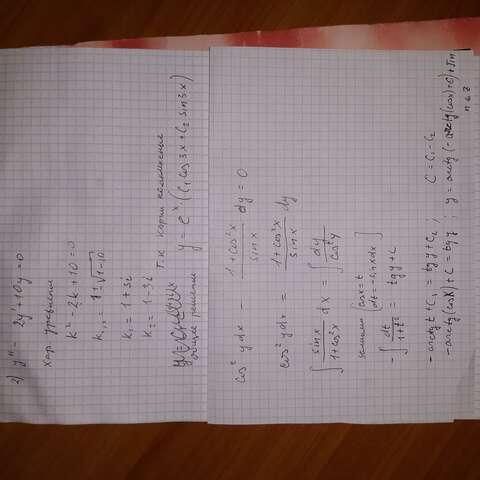 2) y'' - 2y' + 10y = 0
Хар. уравнение
k² - 2k + 10 = 0
k₁,₂ = 1 ± √(1-10)
k₁ = 1 + 3i
k₂ = 1 - 3i
Т.к. корни комплексные
общее решение y = eˣ · (C₁ cos 3x + C₂ sin 3x)
cos² y dx - (1 + cos² x)/(sin x) dy = 0
cos² y dx = (1 + cos² x)/(sin x) dy
∫ (sin x)/(1 + cos² x) dx = ∫ dy/(cos² y)
замена [cos x = t
dt = - sin x dx]
- ∫ dt/(1 + t²) = tg y + C
- arctg t + C₁ = tg y + C₂ C = C₁ - C₂
- arctg (cos x) + C = tg y ; y = arctg (- arctg (cos x) + C) + πn
n ∈ Z